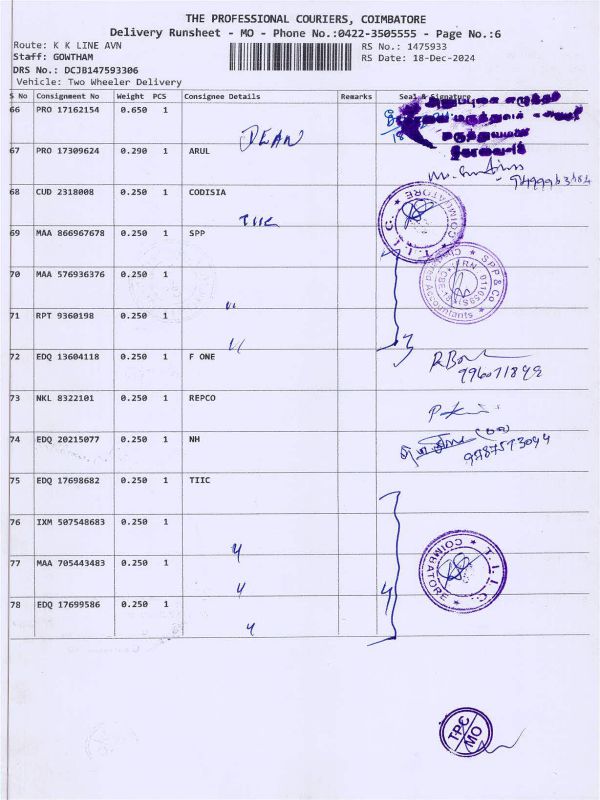 THE PROFESSIONAL COURIERS, COIMBATORE
Delivery Runsheet - MO - Phone No.:0422-3505555 - Page No.:6
Route: K K LINE AVN RS No.: 1475933
Staff: GOWTHAM RS Date: 18-Dec-2024
DRS No.: DCJB147593306
Vehicle: Two Wheeler Delivery
S No Consignment No Weight PCS Consignee Details Remarks Seal & Signature
66 PRO 17162154 0.650 1
DEAN
67 PRO 17309624 0.290 1 ARUL
68 CUD 2318008 0.250 1 CODISIA
T.I.I.C. COIMBATORE
TIIC
69 MAA 866967678 0.250 1 SPP
SPP & Co Chartered Accountants
70 MAA 576936376 0.250 1
"
71 RPT 9360198 0.250 1
"
72 EDQ 13604118 0.250 1 F ONE
73 NKL 8322101 0.250 1 REPCO
74 EDQ 20215077 0.250 1 NH
9787573094
75 EDQ 17698682 0.250 1 TIIC
76 IXM 507548683 0.250 1
"
T.I.I.C. COIMBATORE
77 MAA 705443483 0.250 1
"
78 EDQ 17699586 0.250 1
"
TPC
MO